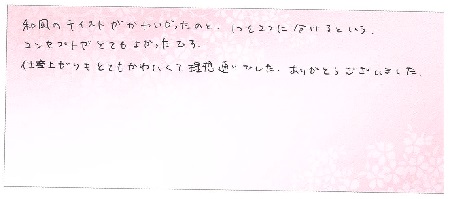 和風のテイストがかわいかったのと、1つを2つに分けるという、
コンセプトがとてもよかったから。
仕上がりもとてもかわいくて理想通りでした。ありがとうございました。